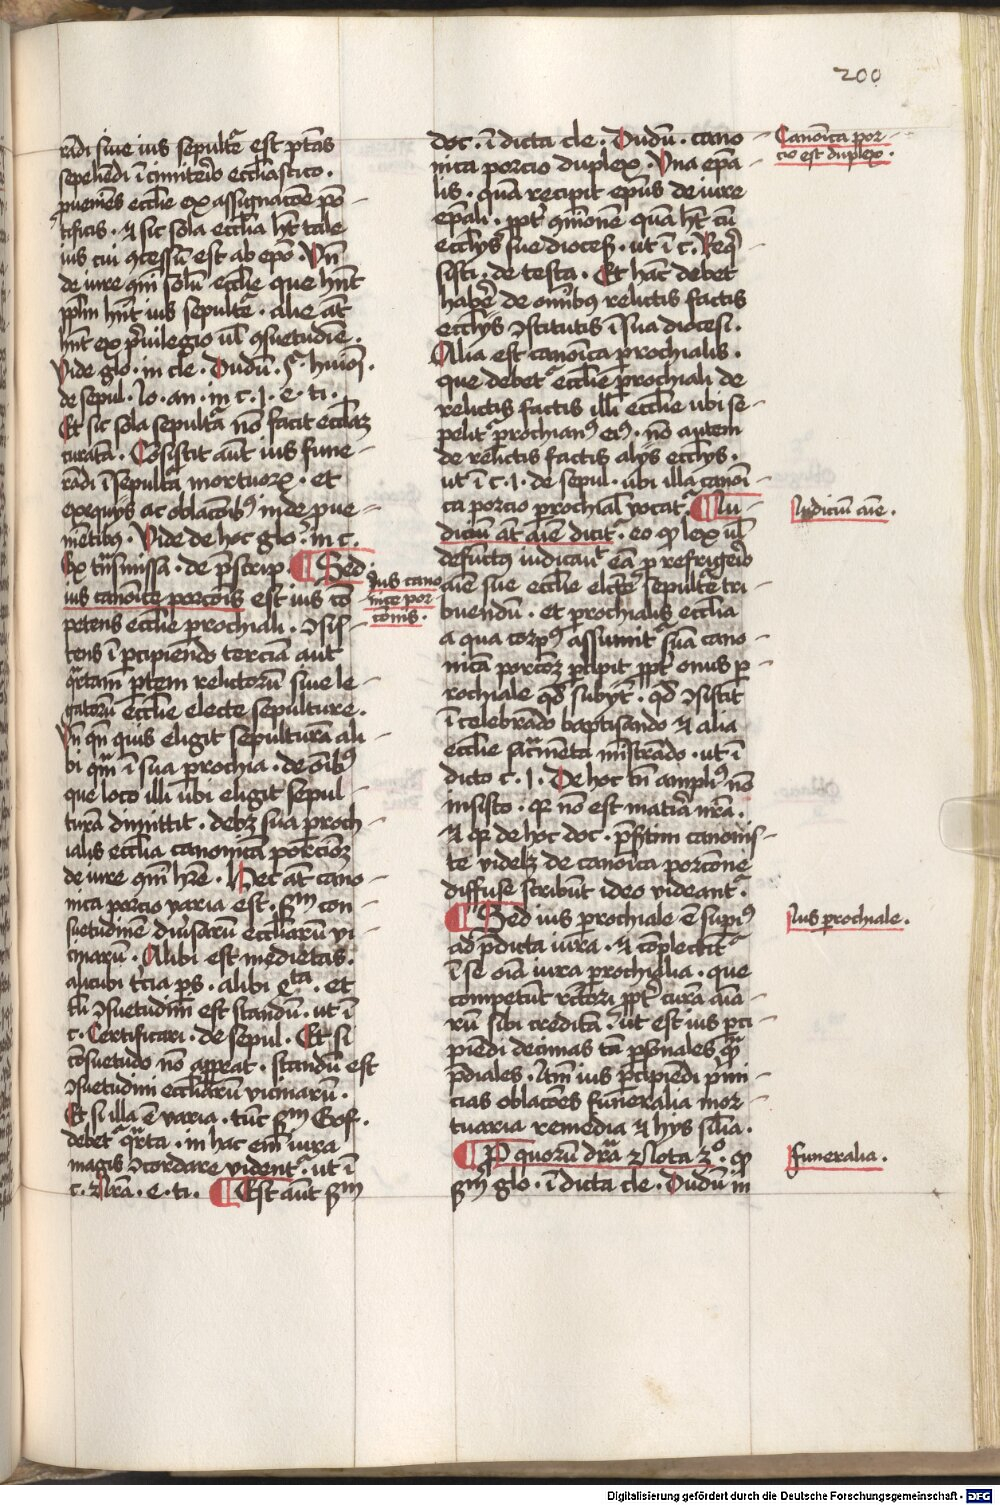 200
rādi siue ius sepultr̄e est ptās
sepeliēdi ī cimiterio eccliastico.
pueniēs ecclie ex assignacōe pō-
tificis. et sic sola ecclia hꝫ tale
ius cui ꝯcessū est ab epō. Vn̄
de iure ꝯmi solū ecclie que hn̄t
pplm̄ hn̄t ius sepultr̄e. alie aūt
hn̄t ex pͥuilegio ul ꝯsuetudīe.
Vide glo. in cle. Dudū. §. huiōi.
de sepul. Io. an. in c. 1. e. ti.
Et sic sola sepultā nō facit eccliaꝫ
curatā. Cōsistit aūt ius fune-
rādi ī sepultā mortuoꝝ. et
exequijs ac oblacōibꝰ inde pue-
niētibꝰ. Vide de hoc glo. in c.
Ex trāsmissa. de pscrip. ¶ Sed
ius canoīce porcōis est ius cō
petens ecclie prochiali. ꝯsis
tens ī pcipiendo terciā aut
qrtam ptem relictorū siue le-
gatorū ecclie electe sepulture.
Vn̄ qn̄ quis eligit sepulturā ali-
bi qm̄ ī sua prochia. de oībꝰ
que loco illi ubi eligit sepul-
turā dimittit. debꝫ sua proch-
ialis ecclia canonicā porcioēꝫ
de iure ꝯmī hr̄e. Hec aūt cano-
nica porcio varia est. scdm con-
suetudinē diuersarū eccliarū vi-
cinarū. Alibi est medietas.
alicubi tercia ps. alibi qrta. et
tūc ꝯsuetudini est standū. ut ī
c. Certificari. de sepul. Et si
cōsuetudo nō appeat. standū est
ꝯsuetudini eccliarū vicinarū.
Et si illa ē varia. tūc scdm Gof.
debet qrta. in hac em̄ iura
magis ꝯcordare videntr. ut ī
c. Nrā. e. ti. ¶ Est aūt scdm
Ius cano
nice por
cōnis.
doc. ī dicta cle. Dudū. cano-
nica porcio duplex. Vna epā-
lis. quā recipit epūs de iure
epāli. ppt ꝯmōnē quā hꝫ cū
ecclijs sue dioces. ut ī c. Req̄
sisti. de testa. Et hāc debet
habēe de omībꝫ relictis factis
ecclijs ꝯstitutis ī sua diocesi.
Alia est canoīca prochialis.
que debetr ecclie prochiali de
relictis factis illi ecclie ubi se-
pelitr prochianꝰ eiꝰ. nō autem
de relictis factis alijs ecclijs.
ut ī c. 1. de sepul. ubi illa canoī
ca porcio prochial vocatr. ¶ Iu-
diciū aūt aīe dicitr. eo qp lex ul
defūctꝰ iudicauit eā p refrigerio
aīe sue ecclie electe sepultr̄e tri-
buendū. et prochialis ecclia
a qua corpꝰ assumitr suā cano-
nicā porcoēꝫ pcipit ppt onus p-
rochiale qd subijt. qd ꝯsistit
ī celebrādo baptisando et alia
ecclie sacrmēta mīstrādo. ut ī
dicto c. 1. De hoc tn̄ ampliꝰ nō
insisto. qr nō est matia nrā.
et qr de hoc doc. pn̄tim canonis-
te videlꝫ de canoīca porcōne
diffuse scribūt ideo videantr.
¶ Sed ius prochiale ē supiꝰ
ad pdicta iura. et cōplectitr
ī se oīa iura prochialia. que
competūt rectori ppt curā aīa-
rū sibi creditā. ut est ius pci-
piēdi decimas tā psonales qm̄
pdiales. Itm̄ ius pcipiēdi pͥmi-
cias oblacōes funeralia mor-
tuaria remedia et hijs silīa.
¶ P quorū drā Nota 2o. qp
scdm glo. ī dicta cle. Dudū in
Canoīca por-
cio est duplex.
Iudiciū aīe.
Ius prochiale.
Funeralia.
Digitalisierung gefördert durch die Deutsche Forschungsgemeinschaft - DFG